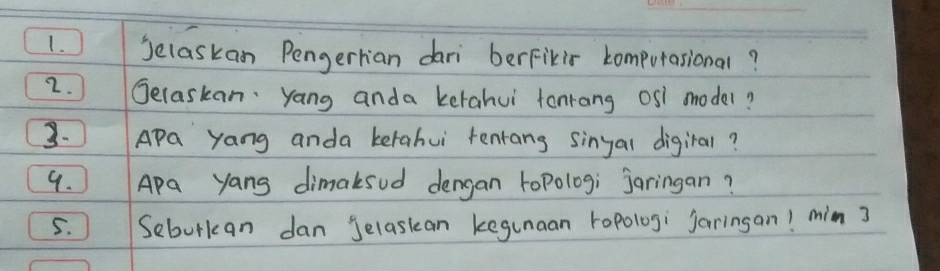 1. Jelaskan Pengertian dari berfikir komputasional ?
2. Jelaskan. yang anda ketahui tentang osi model ?
3. Apa yang anda ketahui tentang sinyal digital ?
4. Apa yang dimaksud dengan topologi jaringan ?
5. Sebutkan dan jelaskan kegunaan topologi jaringan ! min 3